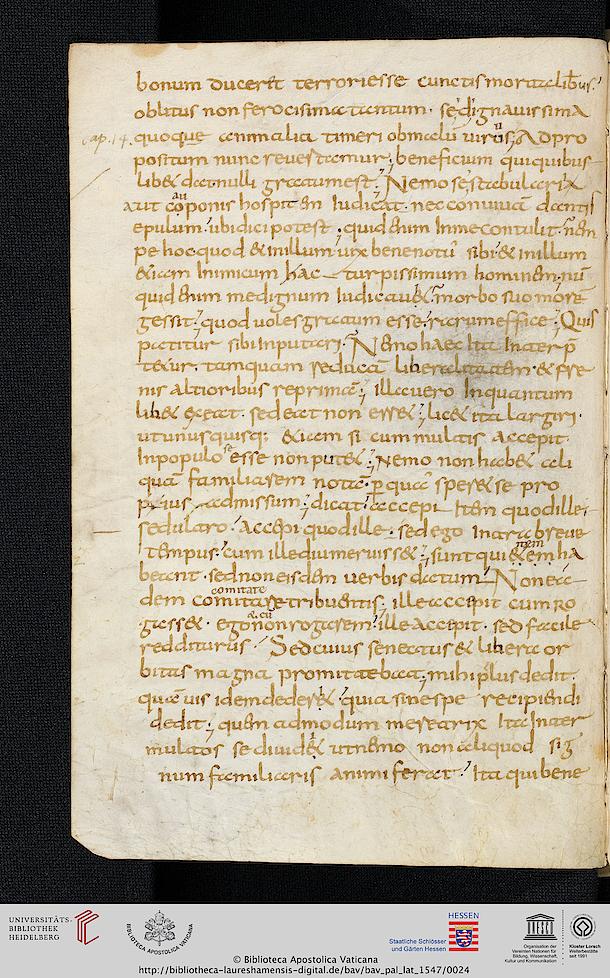 bonum duceret terroriesse cunctis mortalib;us.
oblitus non ferocisima tantum · sed ignavissima
cap. 14. quoque animalia timeri obmalu virus; Adpro
positum nunc revertamur; beneficium quiquibus
libet dat nulli gratum est; Nemo se stabularix
aut coponis hospitem Iudicat · nec convivā dantis
epulum · ubi dici potest · quid enim Inme contulit · nēm
pe hoc quod et inillum vix bene notū sibi et inillum
etiam Inimicum hac turpissimum hominem · nū
quid enim me dignum Iudicavit · morbo suo morē
gessit; quod voles gratum esse rarum effice; Quis
patitur sibi Inputari · Nemo haec Ita Inter p̄
tetur · tamquam reducā liberalitatem · et fre
nis altioribus reprimā; illa vero Inquantum
libet exeat · sed eat non erret; licet ita largiri ·
ut unus quisq; etiam si cum multis accepit ·
Inpopulo se esse non putet; Nemo non habet ali
quā familiarem notā · p quā speret se pro
pius admissum; dicat accepi Item quod ille
sed ultro · Accepi quod ille · sed ego Intra breve
tempus · cum ille diu meruisset; sunt qui idem et em ha
beant · sed non eisdem verbis datum Non ea
dem comitate tribuentis; ille accepit cum ro
gasset · ego non rogarem; ille Accepit · sed facile
redditurus Sed cuius senectus et libera or
bitas magna promitebat; mihi plus dedit ·
quāvis idem dederit quia sine spe recipiendi
dedit; quem admodum meretrix Ita Inter
multos se dividet ut nemo non aliquod sig
num familiaris animi ferat · Ita qui bene
UNIVERSITÄTS-
BIBLIOTHEK
HEIDELBERG
BIBLIOTECA APOSTOLICA VATICANA
Staatliche Schlösser
und Gärten Hessen
HESSEN
UNESCO
Organisation der
Vereinten Nationen für
Bildung, Wissenschaft,
Kultur und Kommunikation
Kloster Lorsch
Welterbestätte
seit 1991
© Biblioteca Apostolica Vaticana
http://bibliotheca-laureshamensis-digital.de/bav/bav_pal_lat_1547/0024